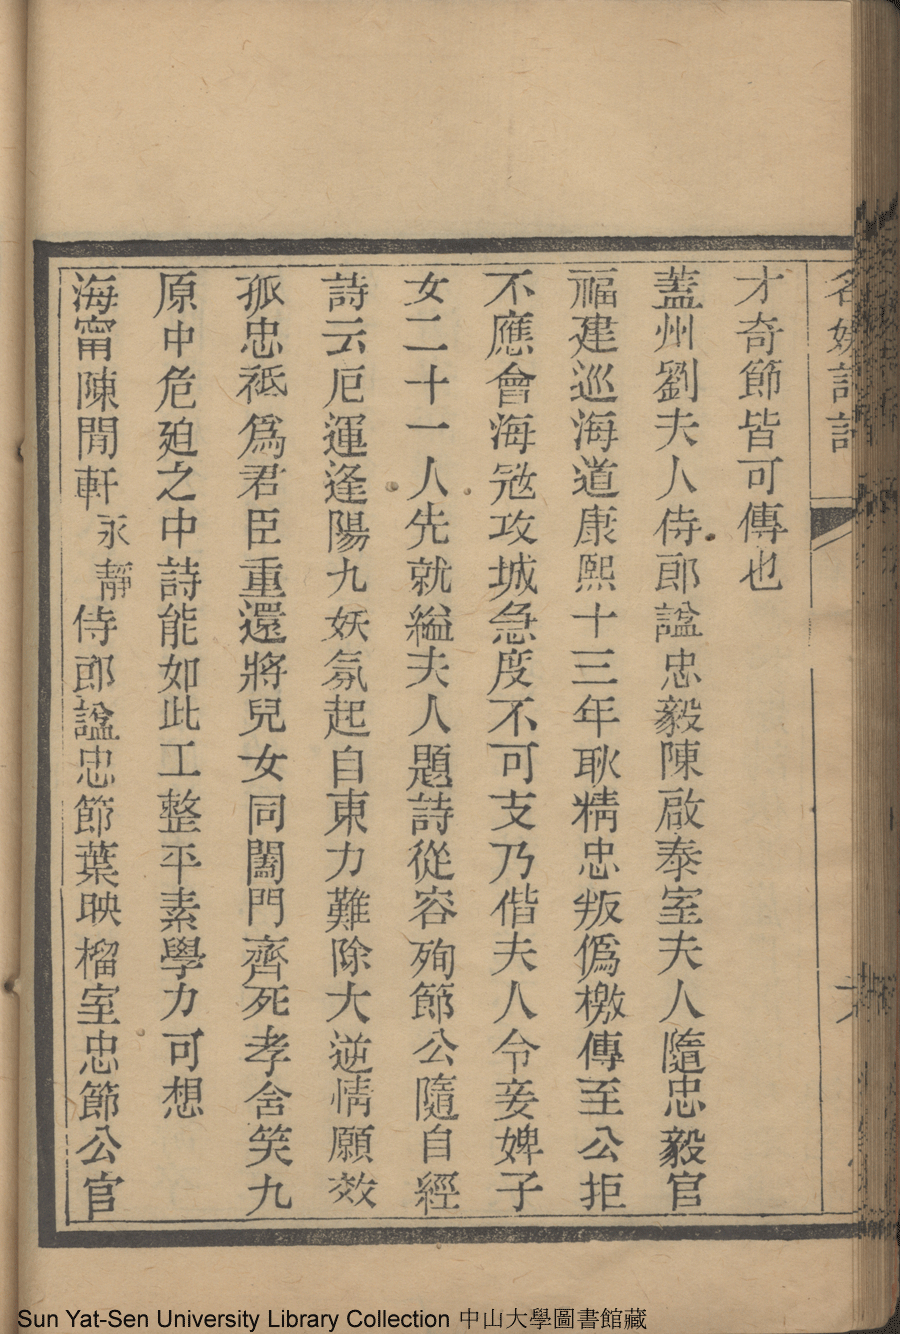 名媛詩話
才奇節皆可傳也
蓋州劉夫人侍郎諡忠毅陳啟泰室夫人隨忠毅官
福建巡海道康熙十三年耿精忠叛僞檄傳至公拒
不應會海冦攻城急度不可支乃偕夫人令妾婢子
女二十一人先就縊夫人題詩從容殉節公隨自經
詩云厄運逢陽九妖氛起自東力難除大逆情願效
孤忠祗爲君臣重還將兒女同闔門齊死孝含笑九
原中危廹之中詩能如此工整平素學力可想
海甯陳閒軒永靜侍郎諡忠節葉映榴室忠節公官
Sun Yat-Sen University Library Collection 中山大學圖書館藏